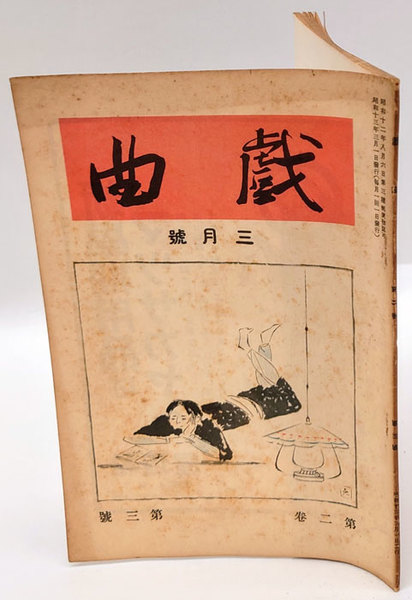 昭和十二年八月六日第三種郵便物認可
昭和十三年三月一日發行(每月一回一日發行)
戲曲
三月號
第二卷 第三號